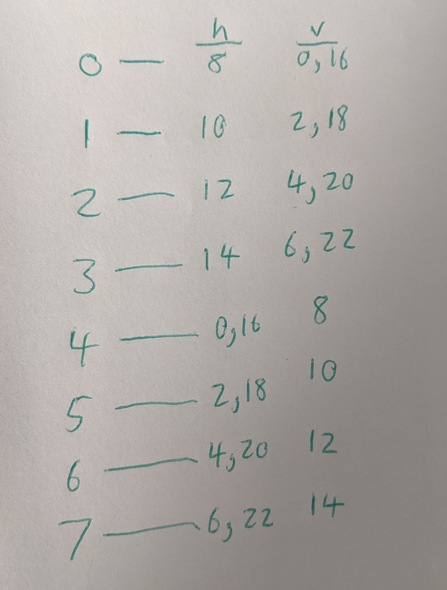 h v
0 — 8 0,16
1 — 10 2,18
2 — 12 4,20
3 — 14 6,22
4 — 0,16 8
5 — 2,18 10
6 — 4,20 12
7 — 6,22 14